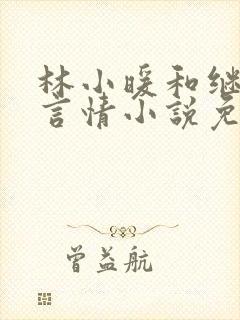 林小暖和继
言情小说免
曾益航